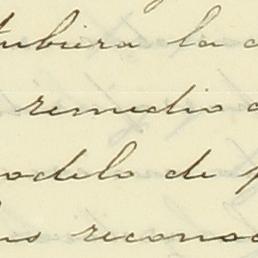 tubiera la
remedio
modelo de
reconoc